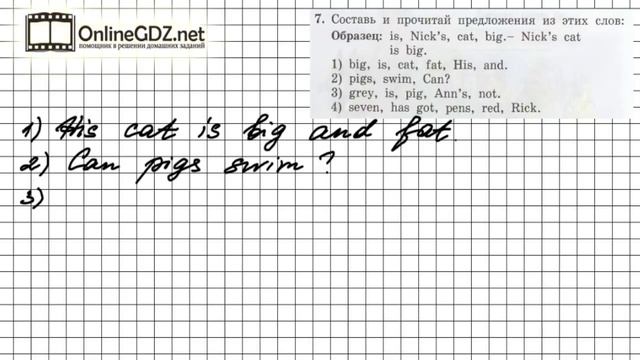 OnlineGDZ.net
помощник в решении домашних заданий
7. Составь и прочитай предложения из этих слов:
Образец: is, Nick's, cat, big.– Nick's cat
is big.
1) big, is, cat, fat, His, and.
2) pigs, swim, Can?
3) grey, is, pig, Ann's, not.
4) seven, has got, pens, red, Rick.
1) His cat is big and fat.
2) Can pigs swim?
3)